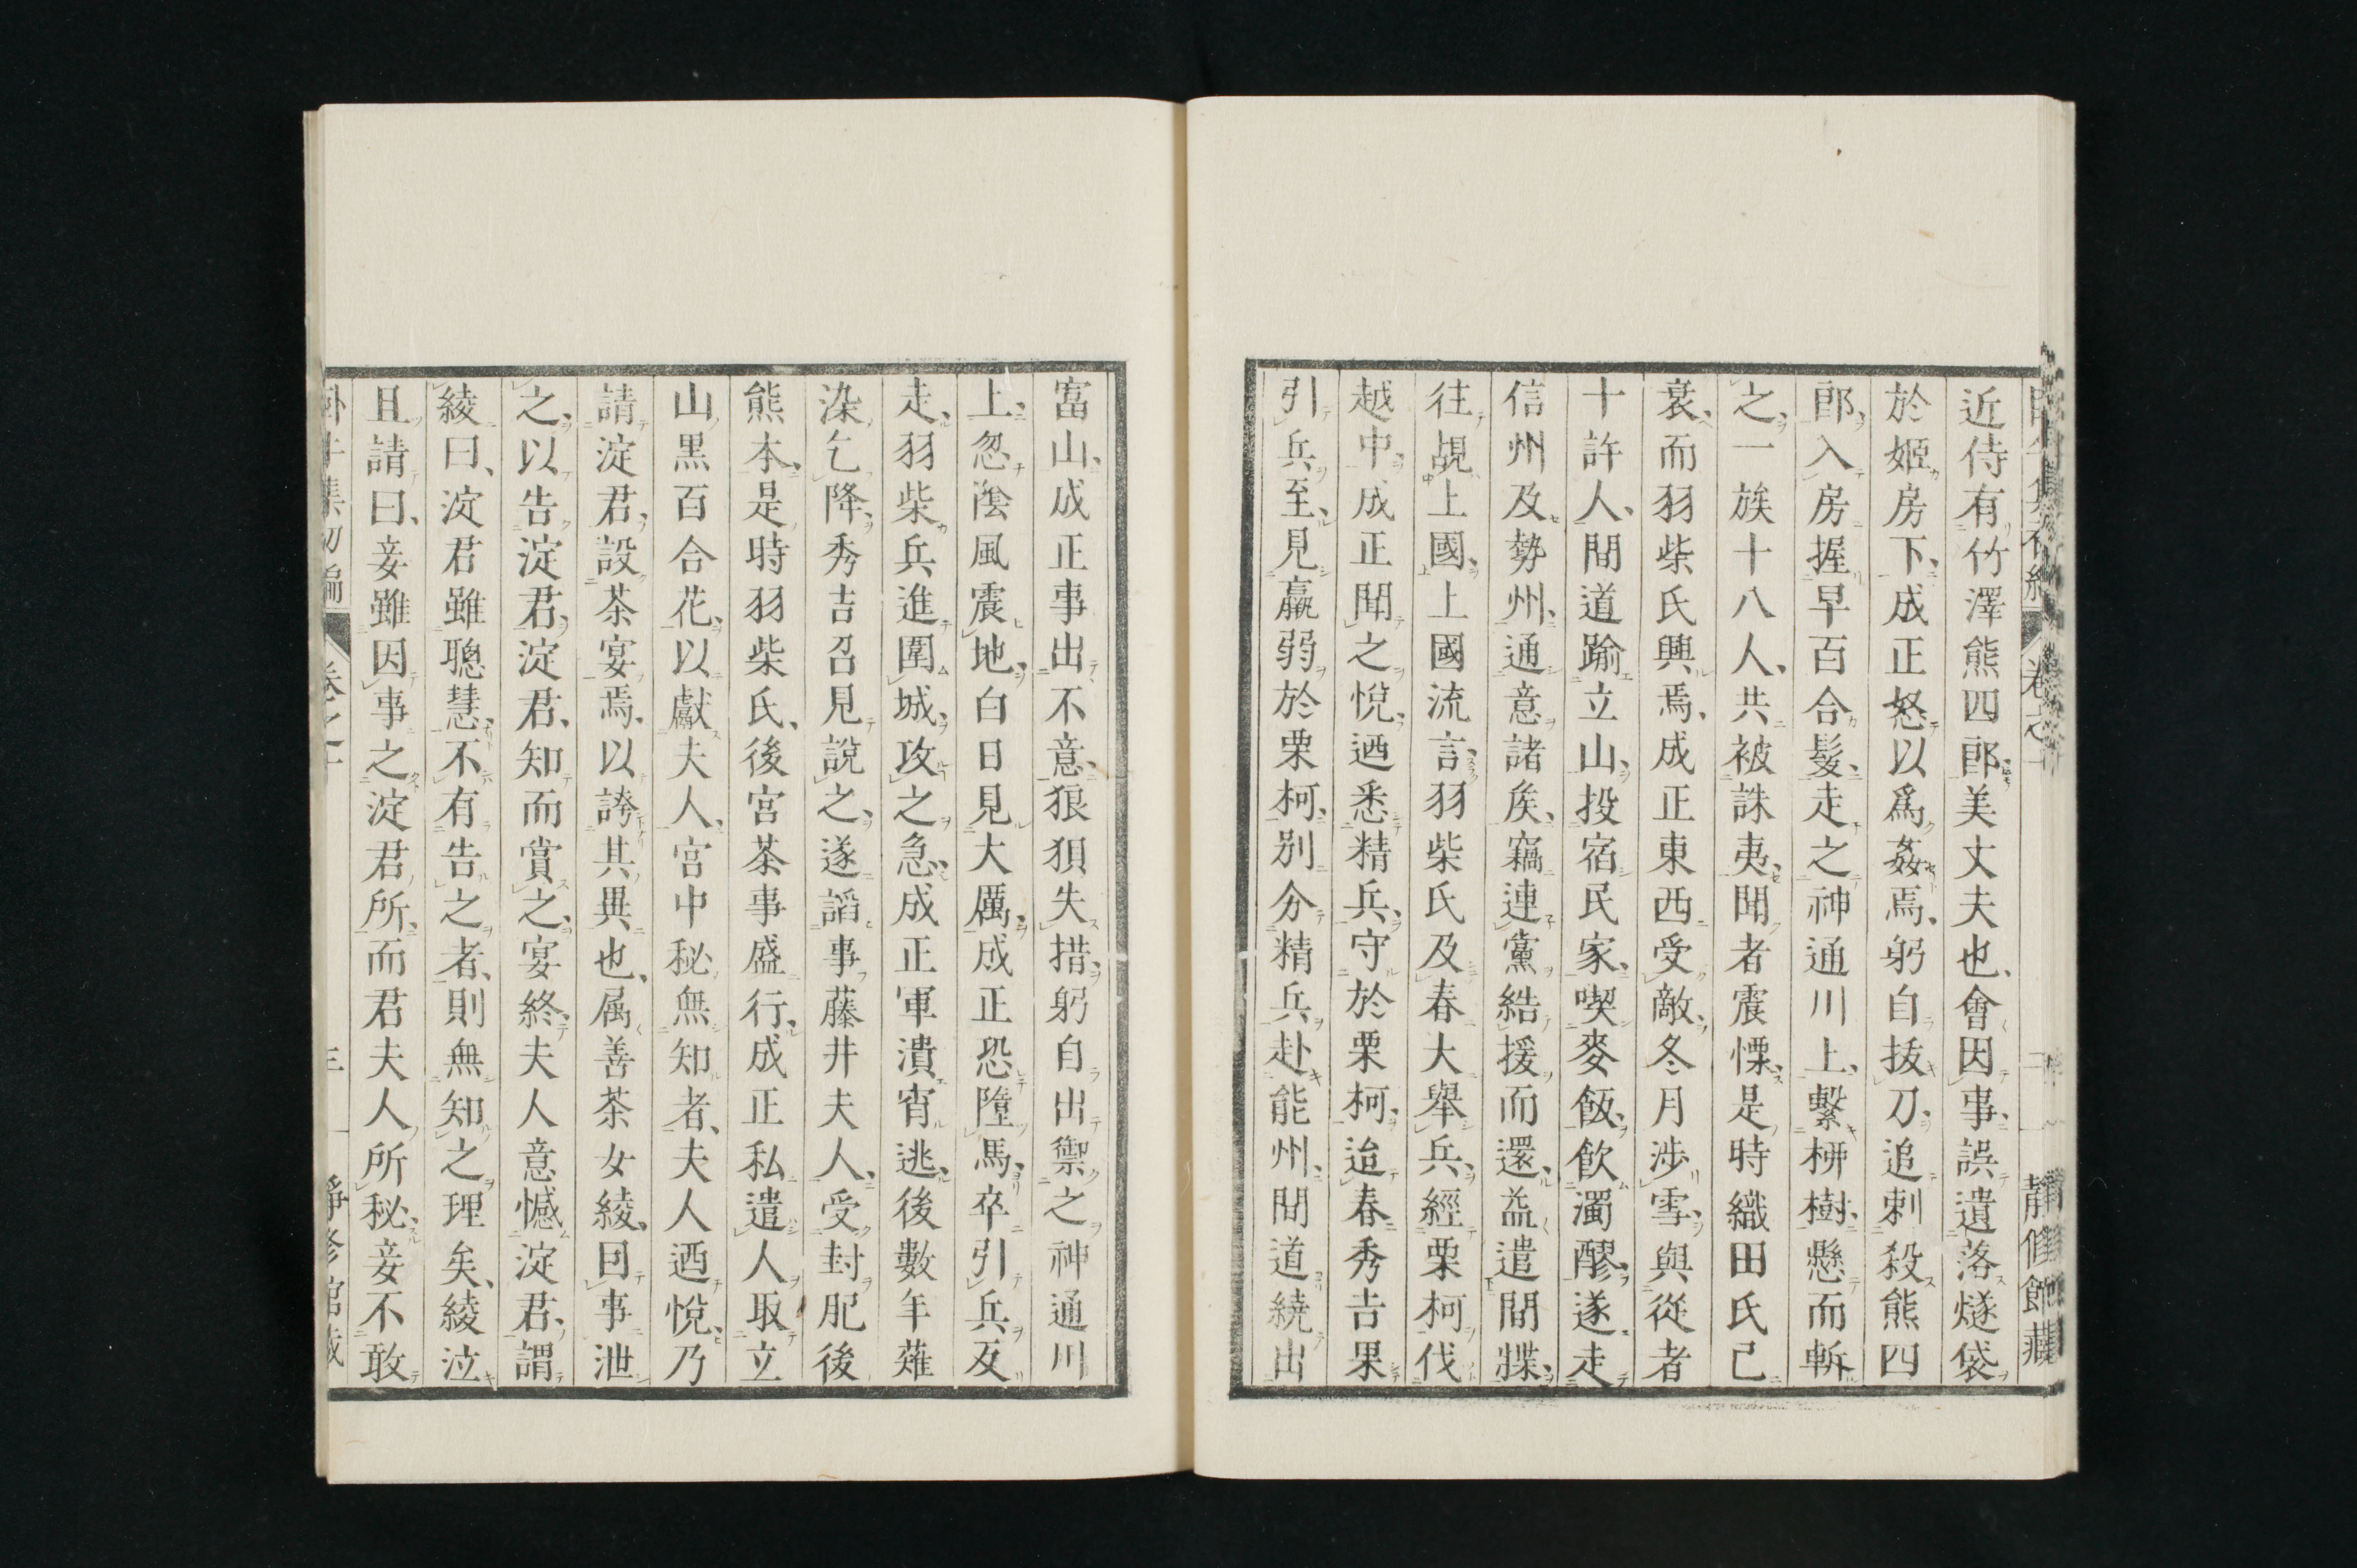 近侍有竹澤熊四郎美丈夫也、會因事、誤遺落燧袋
於姬房下、成正怒以爲姦焉、躬自拔刀、追刺殺熊四
郎、入房握早百合髮、走之神通川上、繫栁樹、懸而斬
之、一族十八人、共被誅夷、聞者震慄、是時織田氏已
衰、而羽柴氏興焉、成正東西受敵、冬月涉雪、與從者
十許人、間道踰立山、投宿民家、喫麥飯、飲濁醪、遂走
信州及勢州、通意諸矦、竊連黨結援而還、益遣間牒、
往覘上國、上國流言、羽柴氏及春大舉兵、經栗柯伐
越中、成正聞之悅、迺悉精兵、守於栗柯、迨春秀吉果
引兵至、見羸弱於栗柯、別分精兵赴能州、間道繞出
富山、成正事出不意、狼狽失措、躬自出禦之神通川
上、忽陰風震地、白日見大厲、成正恐墮馬、卒引兵反
走、羽柴兵進圍城、攻之急、成正軍潰宵逃、後數年薙
染乞降、秀吉召見說之、遂謟事藤井夫人、受封肥後
熊本、是時羽柴氏、後宮茶事盛行、成正私遣人取立
山黑百合花、以獻夫人、宮中秘無知者、夫人迺悅、乃
請淀君、設茶宴焉、以誇其異也、属善茶女綾、因事泄
之、以告淀君、淀君、知而賞之、宴終、夫人意憾淀君、謂
綾曰、淀君雖聰慧、不有告之者、則無知之理矣、綾泣
且請曰、妾雖因事之淀君所、而君夫人所秘、妾不敢
卷之
靜修館藏
三